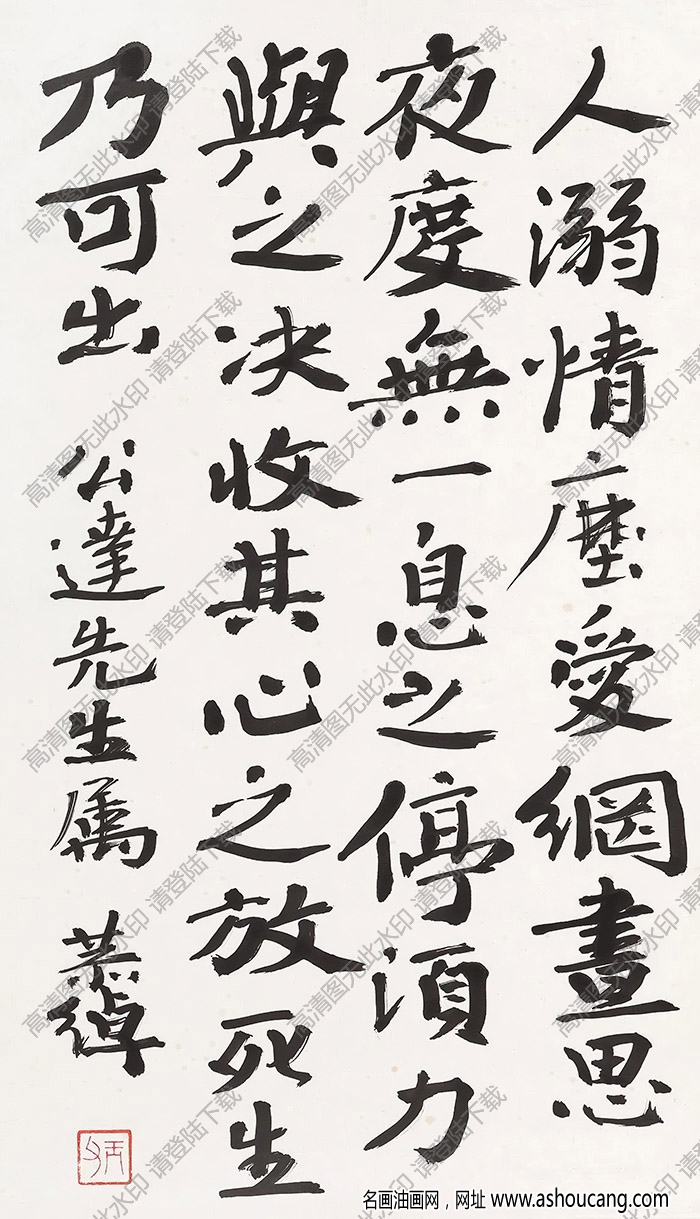 人溺情塵愛網晝思
夜度無一息之停須力
與之决收其心之放死生
乃可出
公達先生属
恭綽
高清图无此水印 请登陆下载
名画油画网，网址 www.ashoucang.com